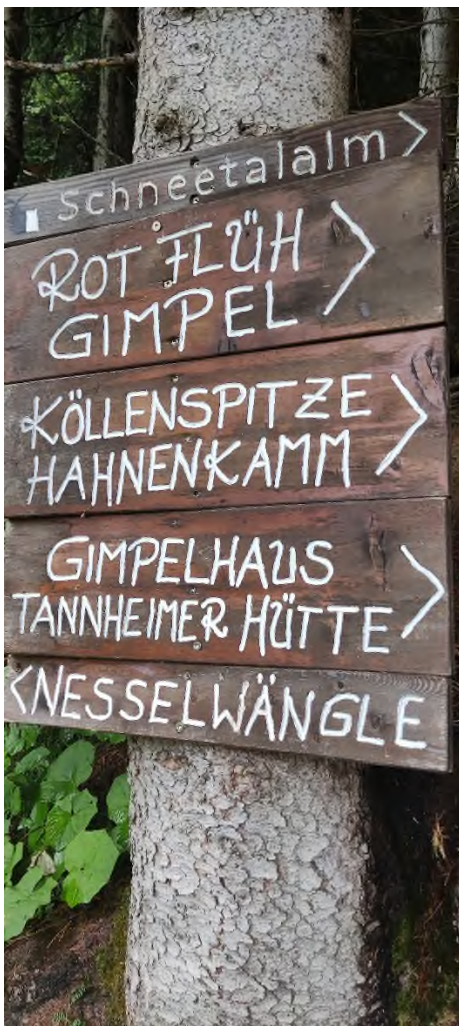 Schneetalalm >
ROT FLÜH >
GIMPEL
KÖLLENSPITZE >
HAHNENKAMM
GIMPELHAUS >
TANNHEIMER HÜTTE
<NESSELWÄNGLE